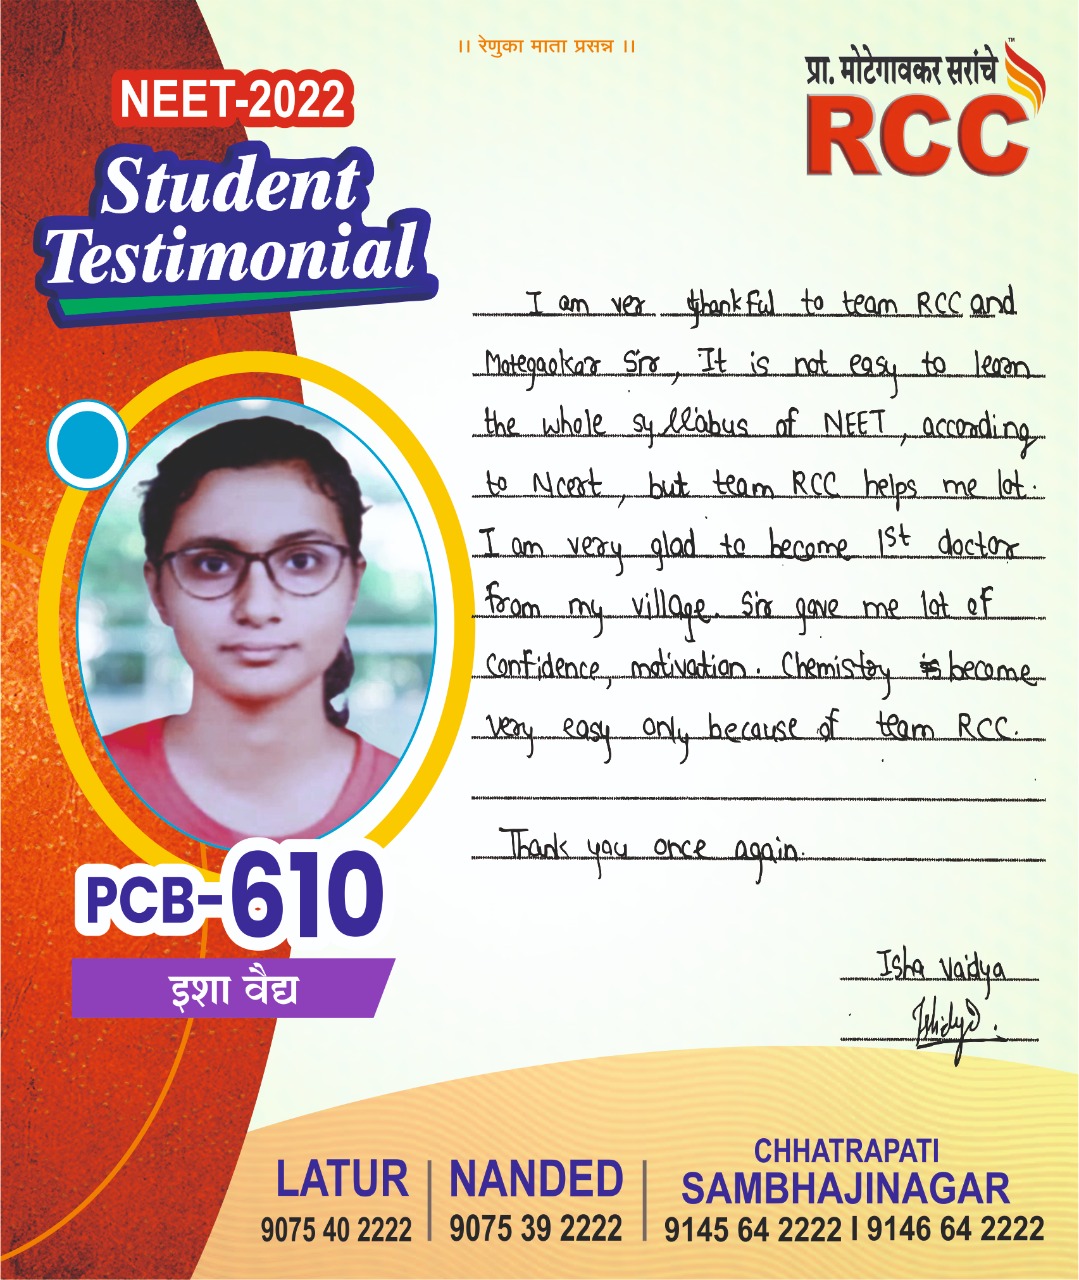 ।। रेणुका माता प्रसन्न ।।
प्रा. मोटेगावकर सरांचे
™
RCC
NEET-2022
Student
Testimonial
I am ver thankful to team RCC and
Motegaokar Sir, It is not easy to learn
the whole syllabus of NEET, according
to Ncert, but team RCC helps me lot.
I am very glad to become 1st doctor
from my village. Sir gave me lot of
confidence, motivation. Chemistry become
very easy only because of team RCC.
Thank you once again.
PCB-610
इशा वैद्य
Isha Vaidya
LATUR
9075 40 2222
NANDED
9075 39 2222
CHHATRAPATI
SAMBHAJINAGAR
9145 64 2222 I 9146 64 2222